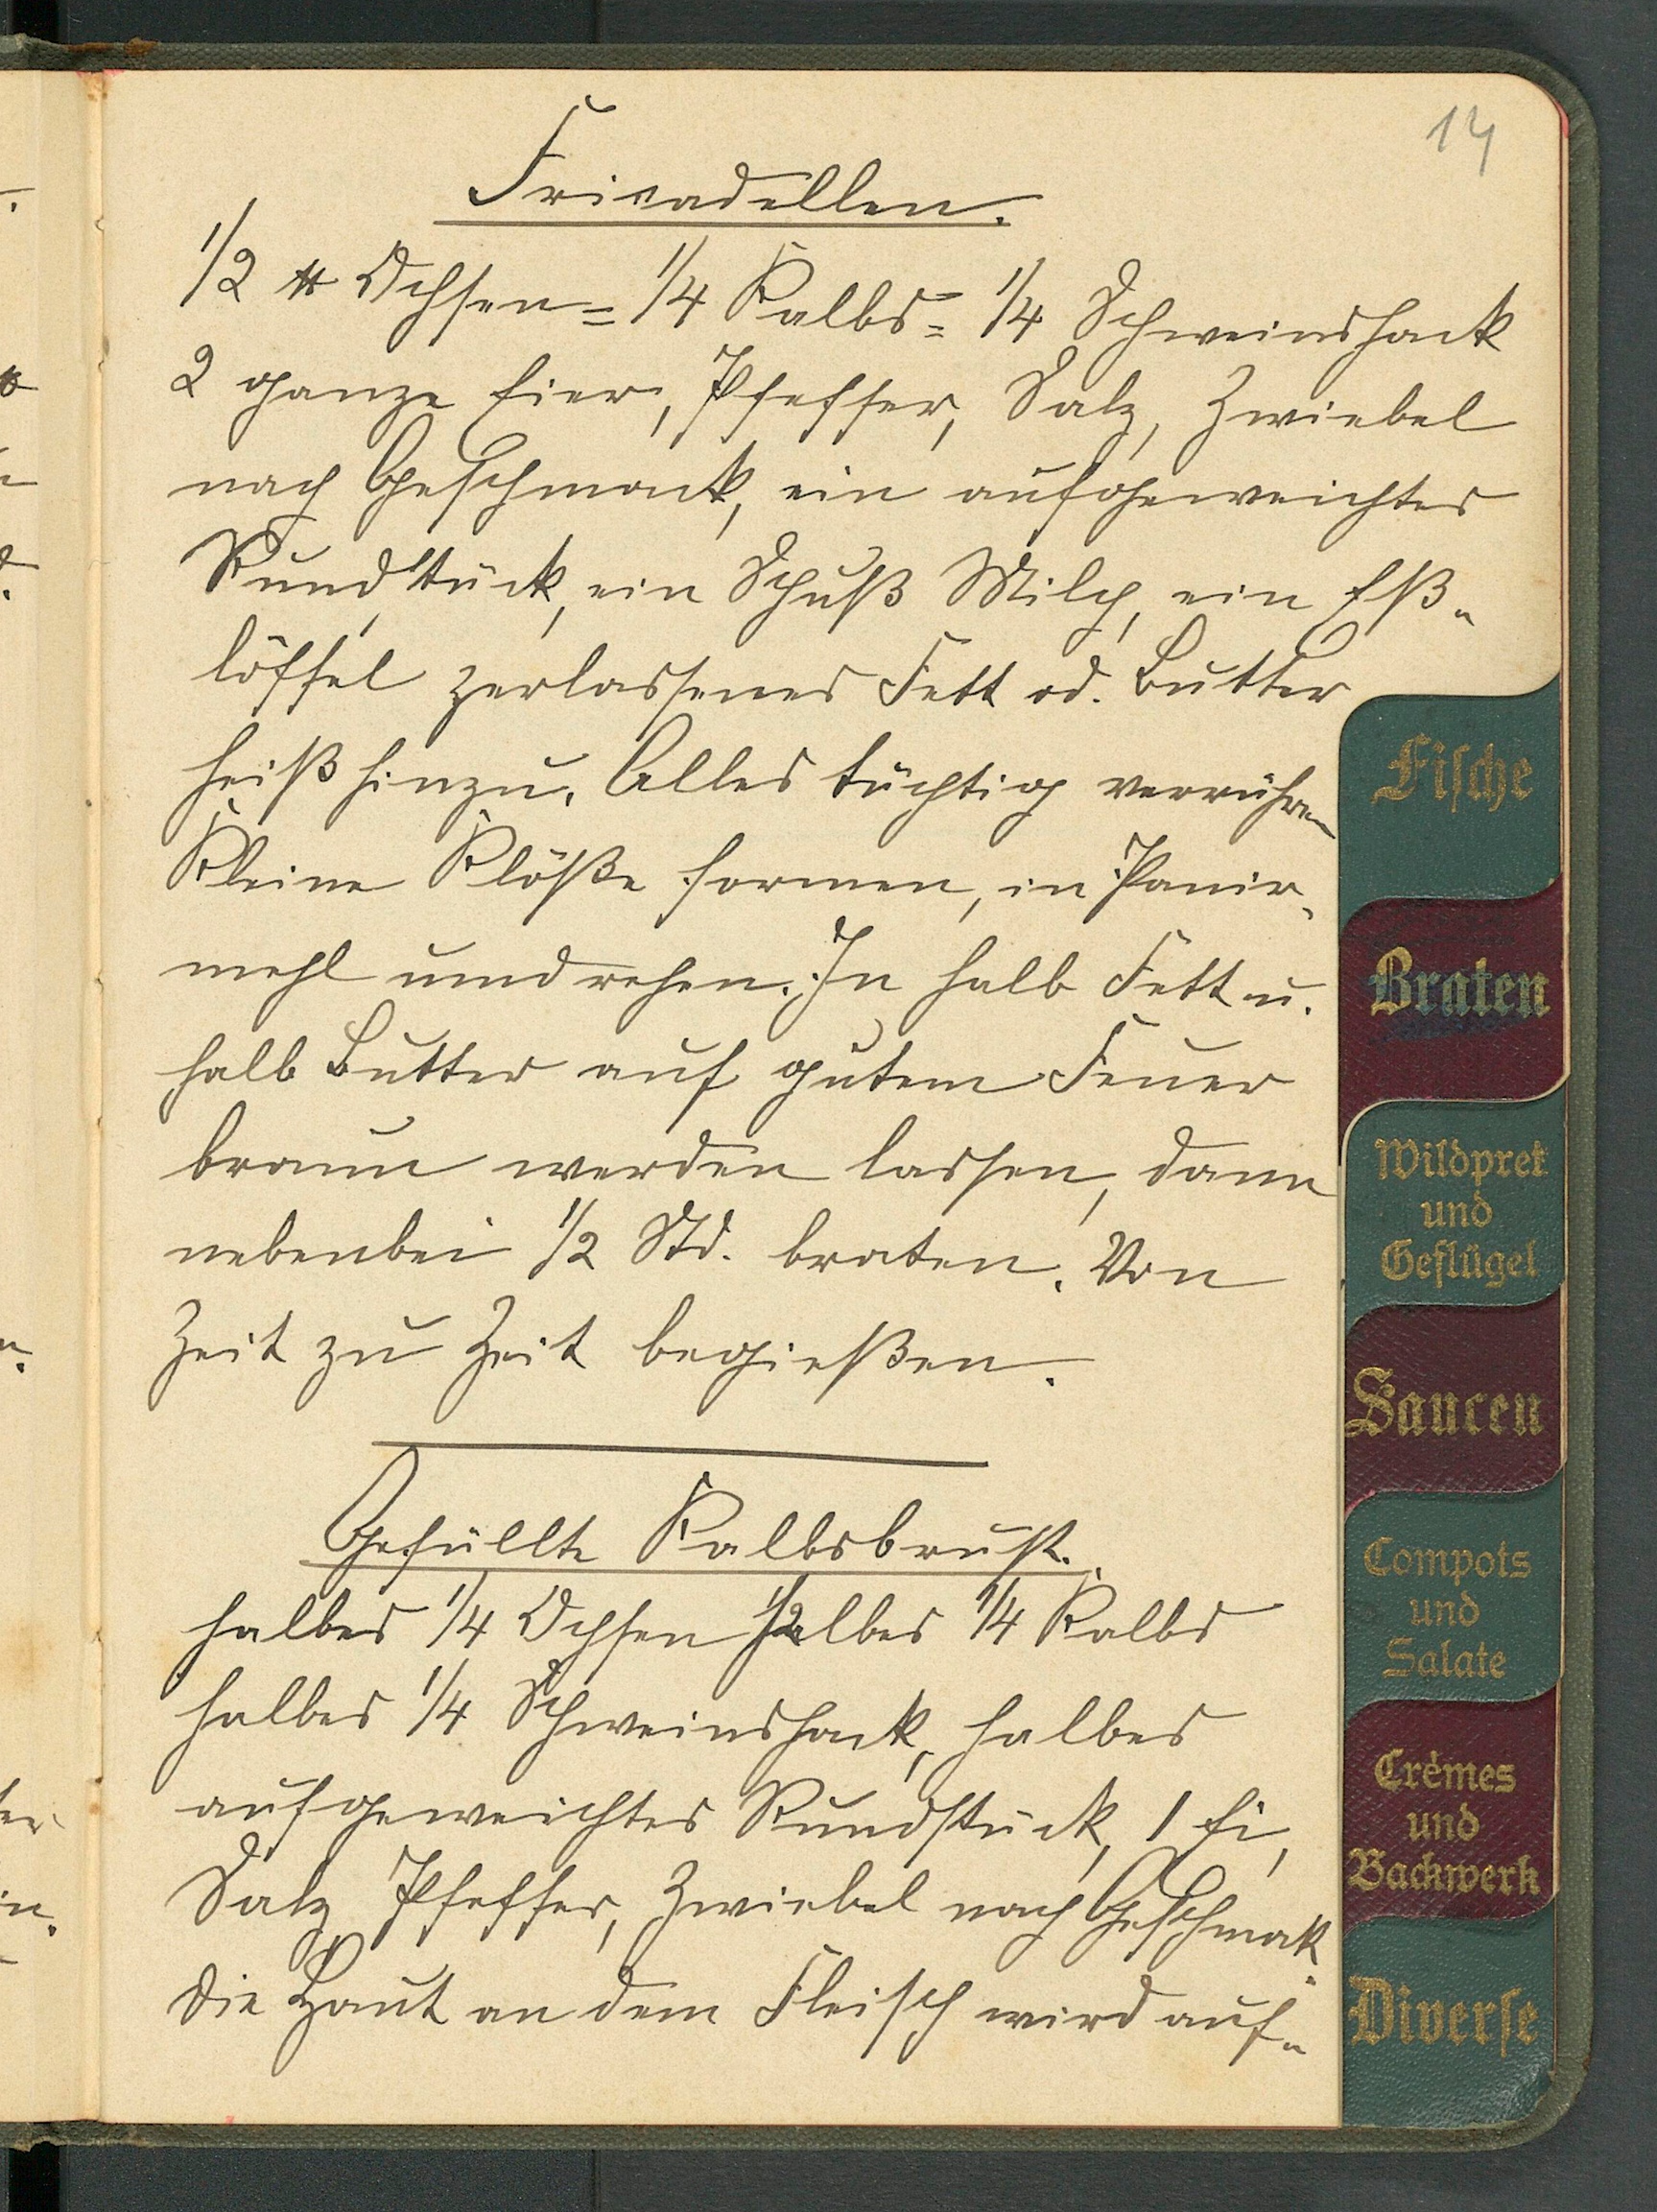 14
Fricadellen.
1/2 ℔ Ochsen= 1/4 Kalbs= 1/4 Schweinshack
2 ganze Eier, Pfeffer, Salz, Zwiebel
nach Geschmack, ein aufgeweichtes
Rundstück, ein Schuß Milch, ein Eß-
löffel zerlassenes Fett od. Butter
heiß hinzu. Alles tüchtig verrühren
Kleine Klöße formen, in Panir-
mehl umdrehen. In halb Fett u.
halb Butter auf gutem Feuer
braun werden lassen, dann
nebenbei 1/2 Std. braten. Von
Zeit zu Zeit begießen.
Gefüllte Kalbsbrust.
halbes 1/4 Ochsen halbes 1/4 Kalbs
halbes 1/4 Schweinshack, halbes
aufgeweichtes Rundstück, 1 Ei,
Salz Pfeffer, Zwiebel nach Geschmak.
Die Haut an dem Fleisch wird auf-
Fische
Braten
Wildpret
und
Geflügel
Saucen
Compots
und
Salate
Crèmes
und
Backwerk
Diverse